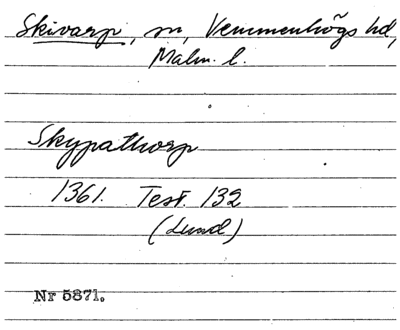 Skivarp, sn, Vemmenhögs hd,
Malm. l.
Skypathorp
1361. Test. 132
(Lund)
Nr 5871.